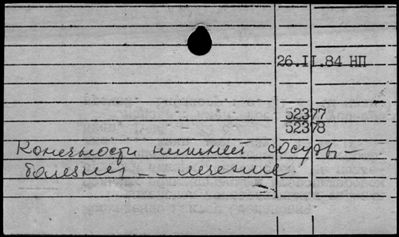 26.II.84 НП
52377
52378
Конечности нижней сосуды –
болезни – – лечение.